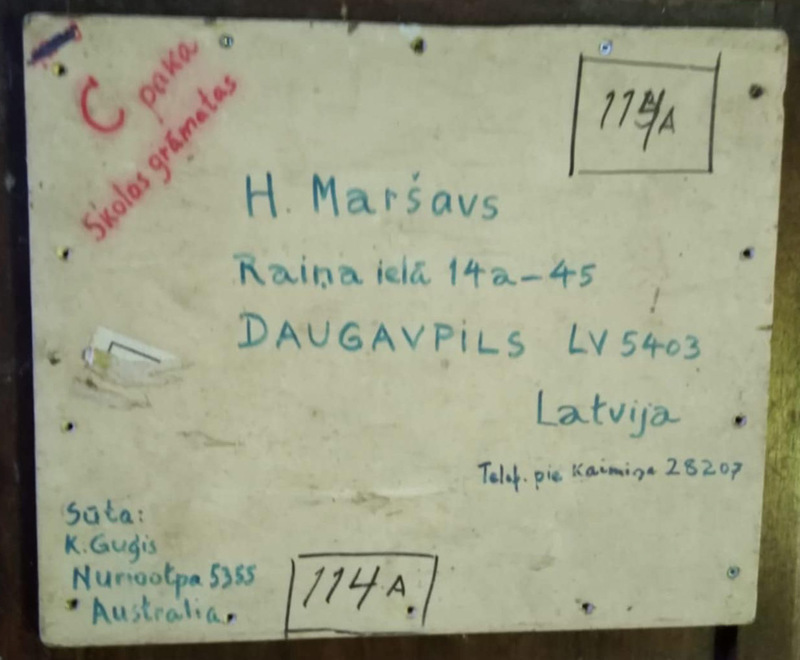 C paka
Skolas grāmatas
114/A
H. Maršavs
Raiņa ielā 14a-45
DAUGAVPILS LV 5403
Latvija
Telef. pie Kaimiņa 28207
Sūta:
K. Guģis
Nuriootpa 5355
Australia.
114 A